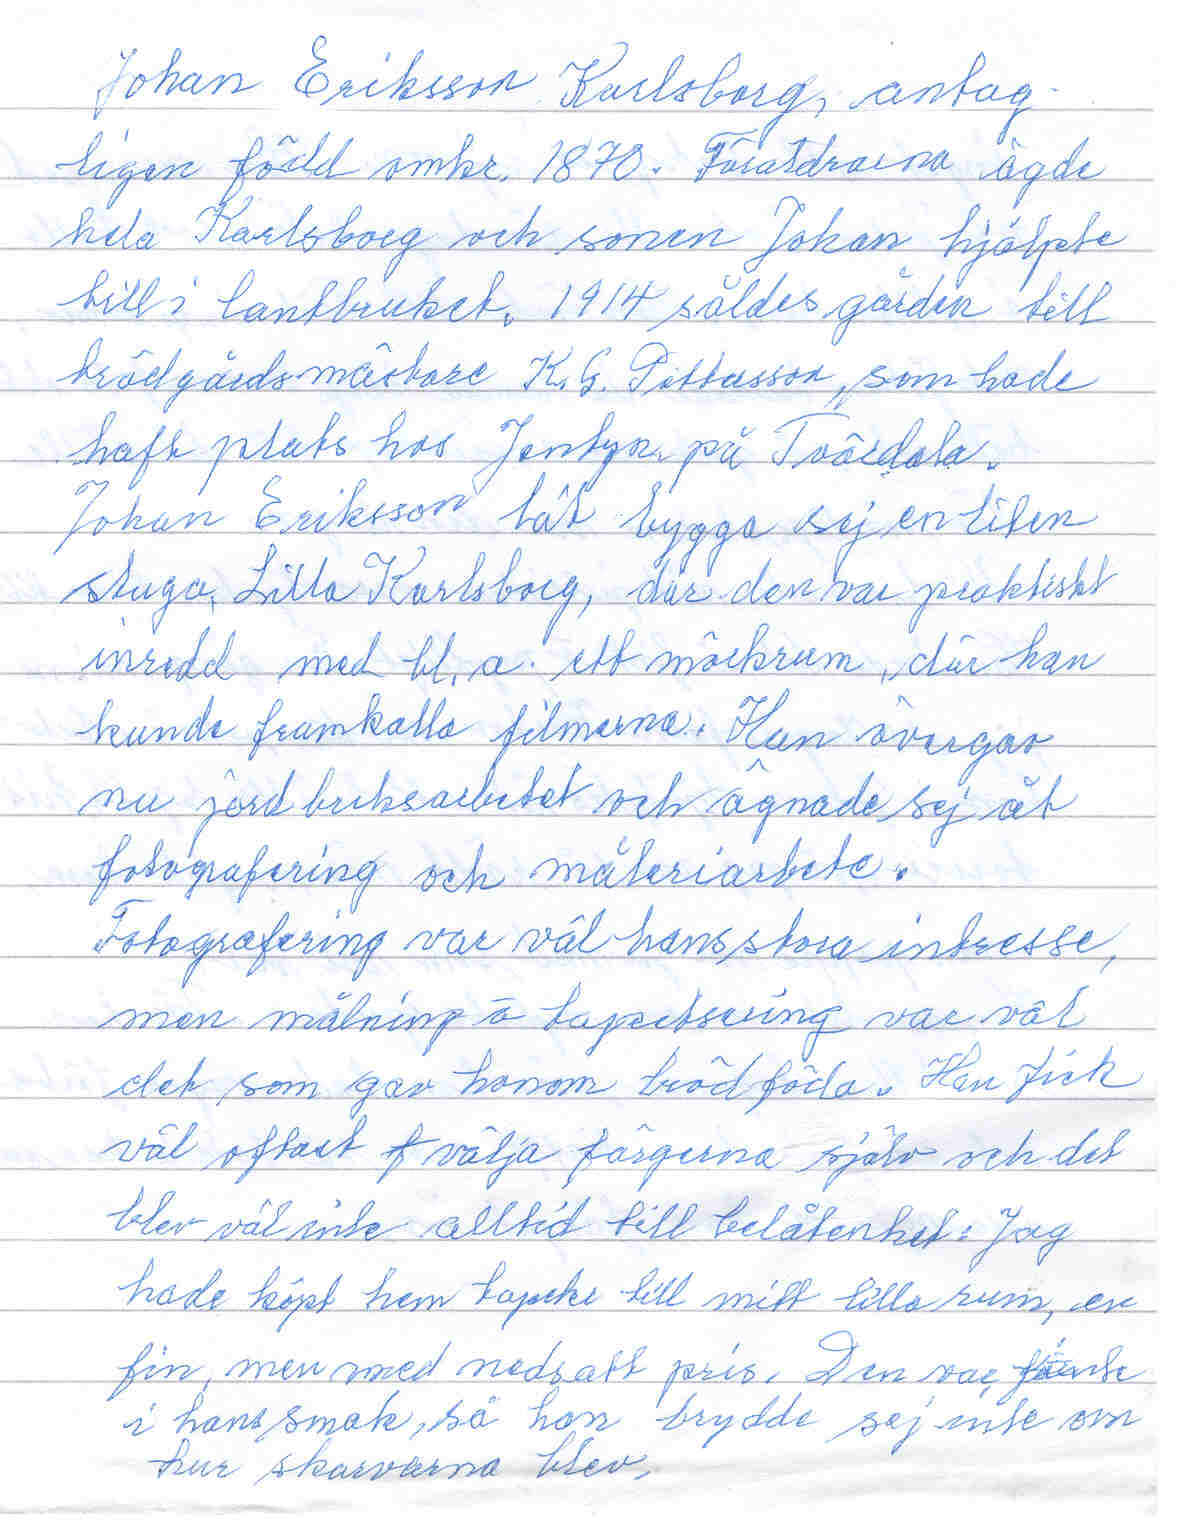 Johan Eriksson Karlsborg, antag-
ligen född omkr. 1870. Föräldrarna ägde
hela Karlsborg och sonen Johan hjälpte
till i lantbruket. 1914 såldes gården till
trädgårdsmästare K. G. Pettersson, som hade
haft plats hos Jentzen på Tvärdala.
Johan Eriksson lät bygga sej en liten
stuga, Lilla Karlsborg, där den var praktiskt
inredd med bl. a. ett mörkrum, där han
kunde framkalla filmerna. Han övergav
nu jordbruksarbetet och ägnade sej åt
fotografering och måleriarbete.
Fotografering var väl hans stora intresse,
men målning o tapetsering var väl
det som gav honom brödföda. Han fick
väl oftast välja färgerna själv och det
blev väl inte alltid till belåtenhet: Jag
hade köpt hem tapeter till mitt lilla rum, en
fin, men med nedsatt pris. Den var inte
i hans smak, så han brydde sej inte om
hur skarvarna blev.